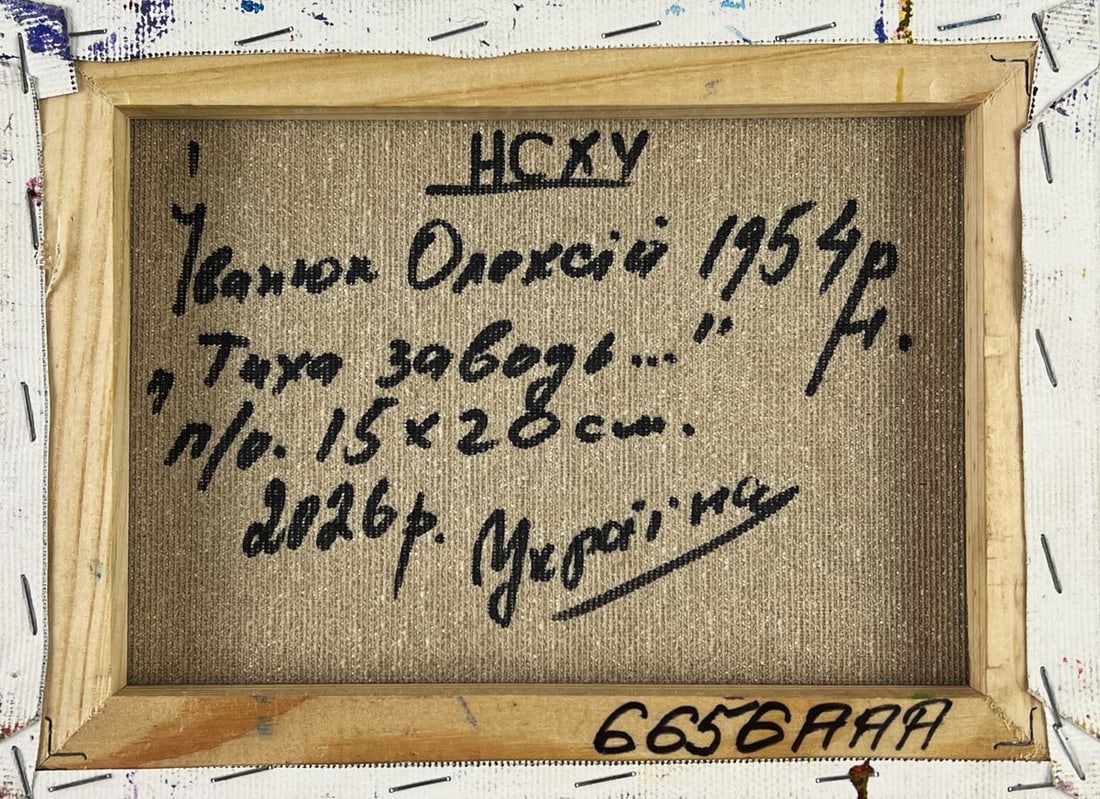 НСХУ
Іванюк Олексій 1954р
н.
"Тиха заводь..."
п/о. 15х20см.
2026р. Україна
6656AAA